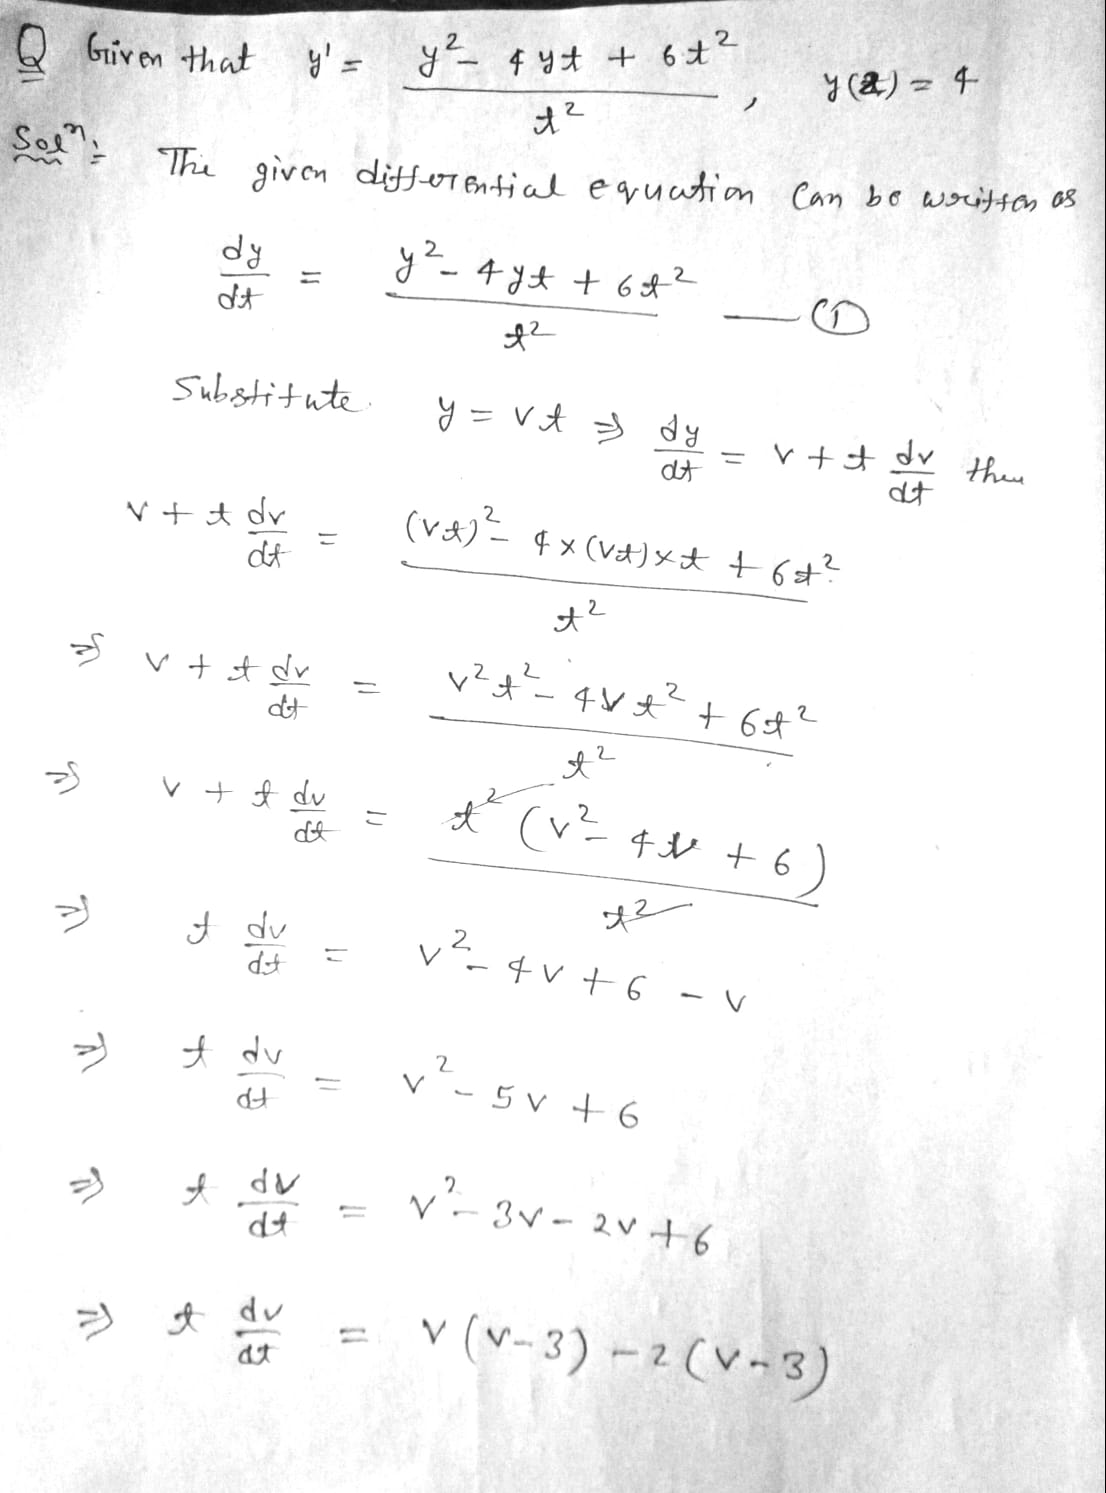 Q Given that y' = (y² - 4yt + 6t²) / t² , y(2) = 4
Solⁿ:- The given differential equation can be written as
dy/dt = (y² - 4yt + 6t²) / t² — ①
Substitute y = vt ⇒ dy/dt = v + t dv/dt then
v + t dv/dt = ((vt)² - 4×(vt)×t + 6t²) / t²
⇒ v + t dv/dt = (v²t² - 4vt² + 6t²) / t²
⇒ v + t dv/dt = t² (v² - 4v + 6) / t²
⇒ t dv/dt = v² - 4v + 6 - v
⇒ t dv/dt = v² - 5v + 6
⇒ t dv/dt = v² - 3v - 2v + 6
⇒ t dv/dt = v (v-3) - 2 (v-3)